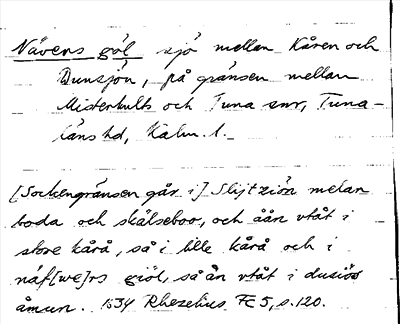 Nävens göl sjö mellan Kåren och
Dunsjön, på gränsen mellan
Misterhults och Tuna snr, Tuna-
läns hd, Kalm. l.
[Sockengränsen går i] Slijtziön melan
boda och skälseboo, och åån vtåt i
store kårå, så i lille kårå och i
näf[we]rs giöl, så ån vtåt i dusiöö
åmun. 1634 Rhezelius Fc 5, s. 120.